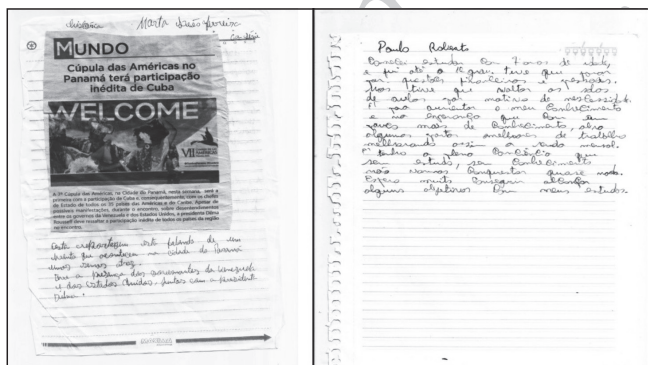 história Marta Inês Pereira
MUNDO
Cúpula das Américas no
Panamá terá participação
inédita de Cuba
WELCOME
VII
A 7ª Cúpula das Américas, na Cidade do Panamá, nesta semana, será a
primeira com a participação de Cuba e, correspondentemente, com os chefes
de Estado de todos os 35 países das Américas e do Caribe. Apesar de
possíveis manifestações, durante o encontro, sobre desentendimentos
entre os governos da Venezuela e dos Estados Unidos, a presidenta Dilma
Rousseff deve ressaltar a participação inédita de todos os países da região
no encontro.
Esta reportagem está falando de um
evento que aconteceu na cidade do Panamá
anos atraz.
Teve a presença dos governantes da Venezuela
e dos Estados Unidos, juntos com a presidente
Dilma.
Paulo Roberto
Comecei estudar com 7 anos de idade,
e fui até a 1ª grau. tive que parar
por questões financeiras e pessoais.
mas tive que voltar as salas
de aulas por motivo de nescessidade.
Pª para aumentar o meu conhecimento
e na esperança que com um
pouco mais de conhecimento, abra
algumas portas melhores de trabalho
melhorando assim a renda mensal.
Pª tenho a plena conciência que
sem estudo, sem conhecimento
não vamos conquistar quase nada.
Espero muito conseguir alcançar
alguns objetivos com meus estudos.